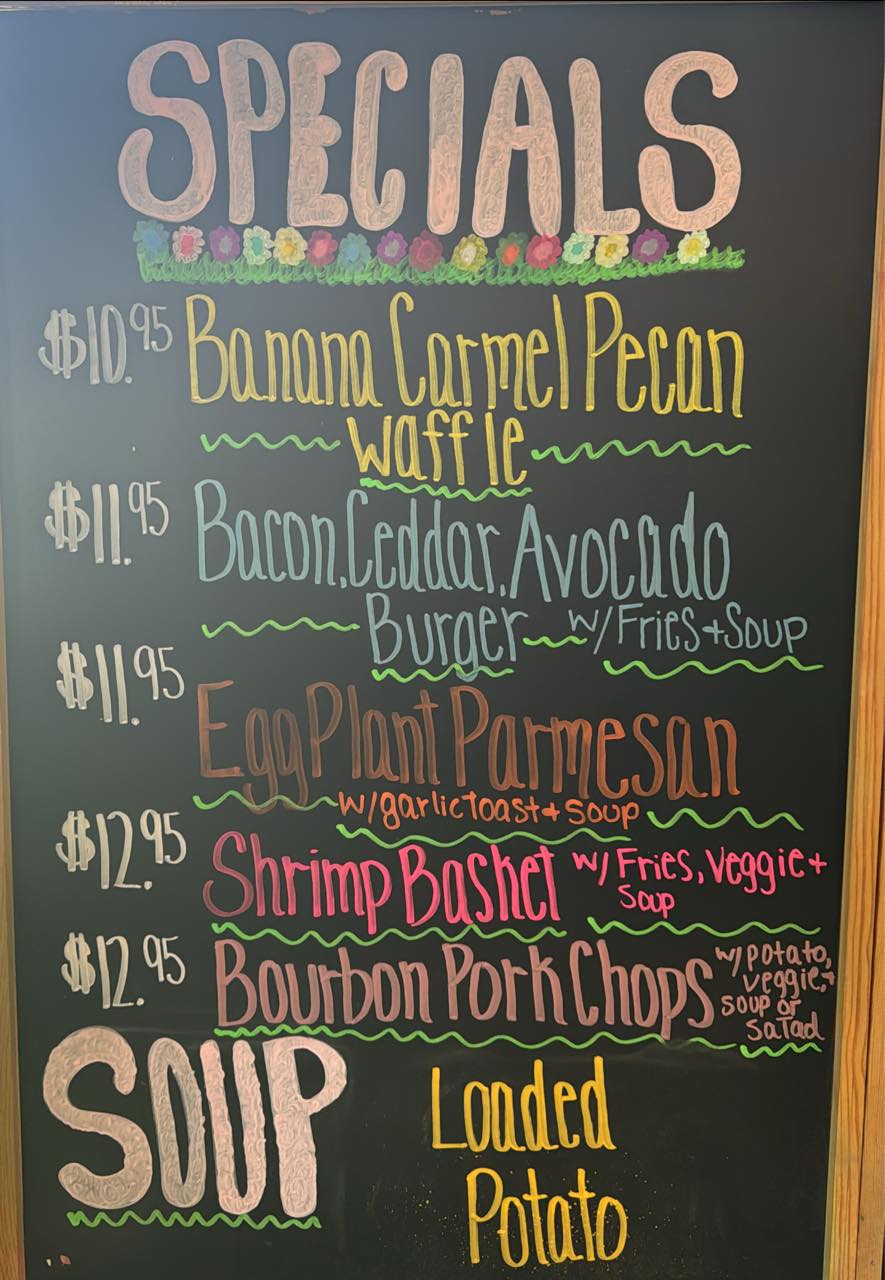 SPECIALS
$10.95 Banana Carmel Pecan
Waffle
$11.95 Bacon, Ceddar, Avocado
Burger w/ Fries + Soup
$11.95 EggPlant Parmesan
w/garlic Toast + Soup
$12.95 Shrimp Basket w/ Fries, Veggie +
Soup
$12.95 Bourbon Pork Chops w/ potato,
veggie, +
soup or
salad
SOUP Loaded
Potato